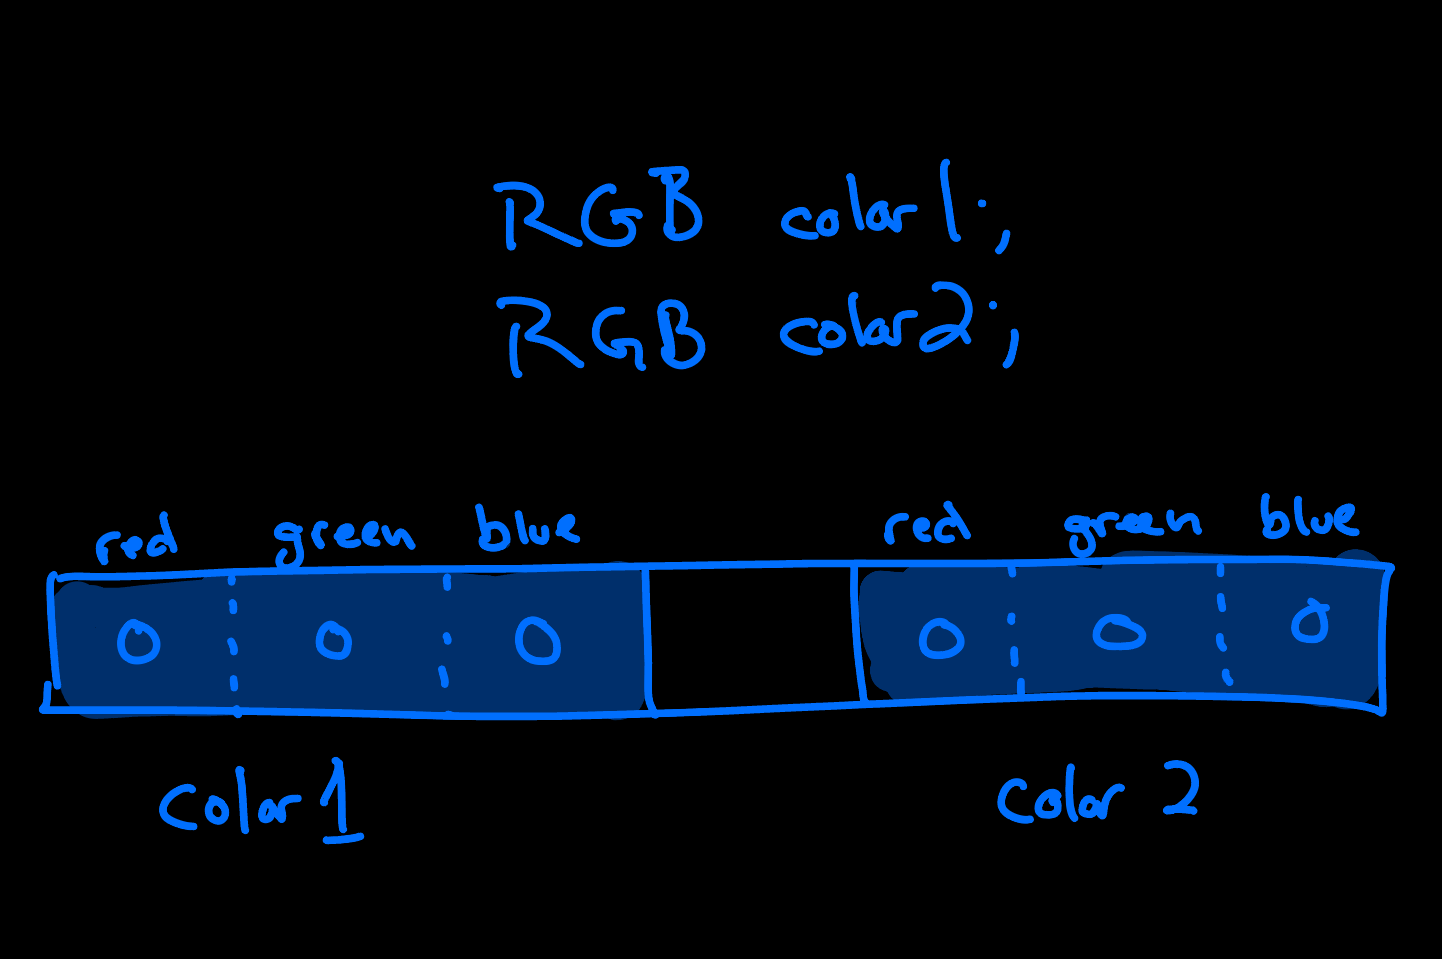 RGB color1;
RGB color2;
red green blue red green blue
0 0 0 0 0 0
Color 1 Color 2